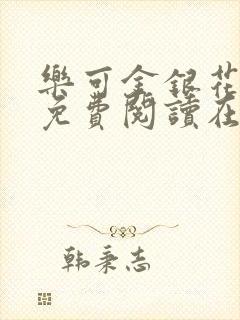 樂可金銀花
免費閱讀在
韩秉志